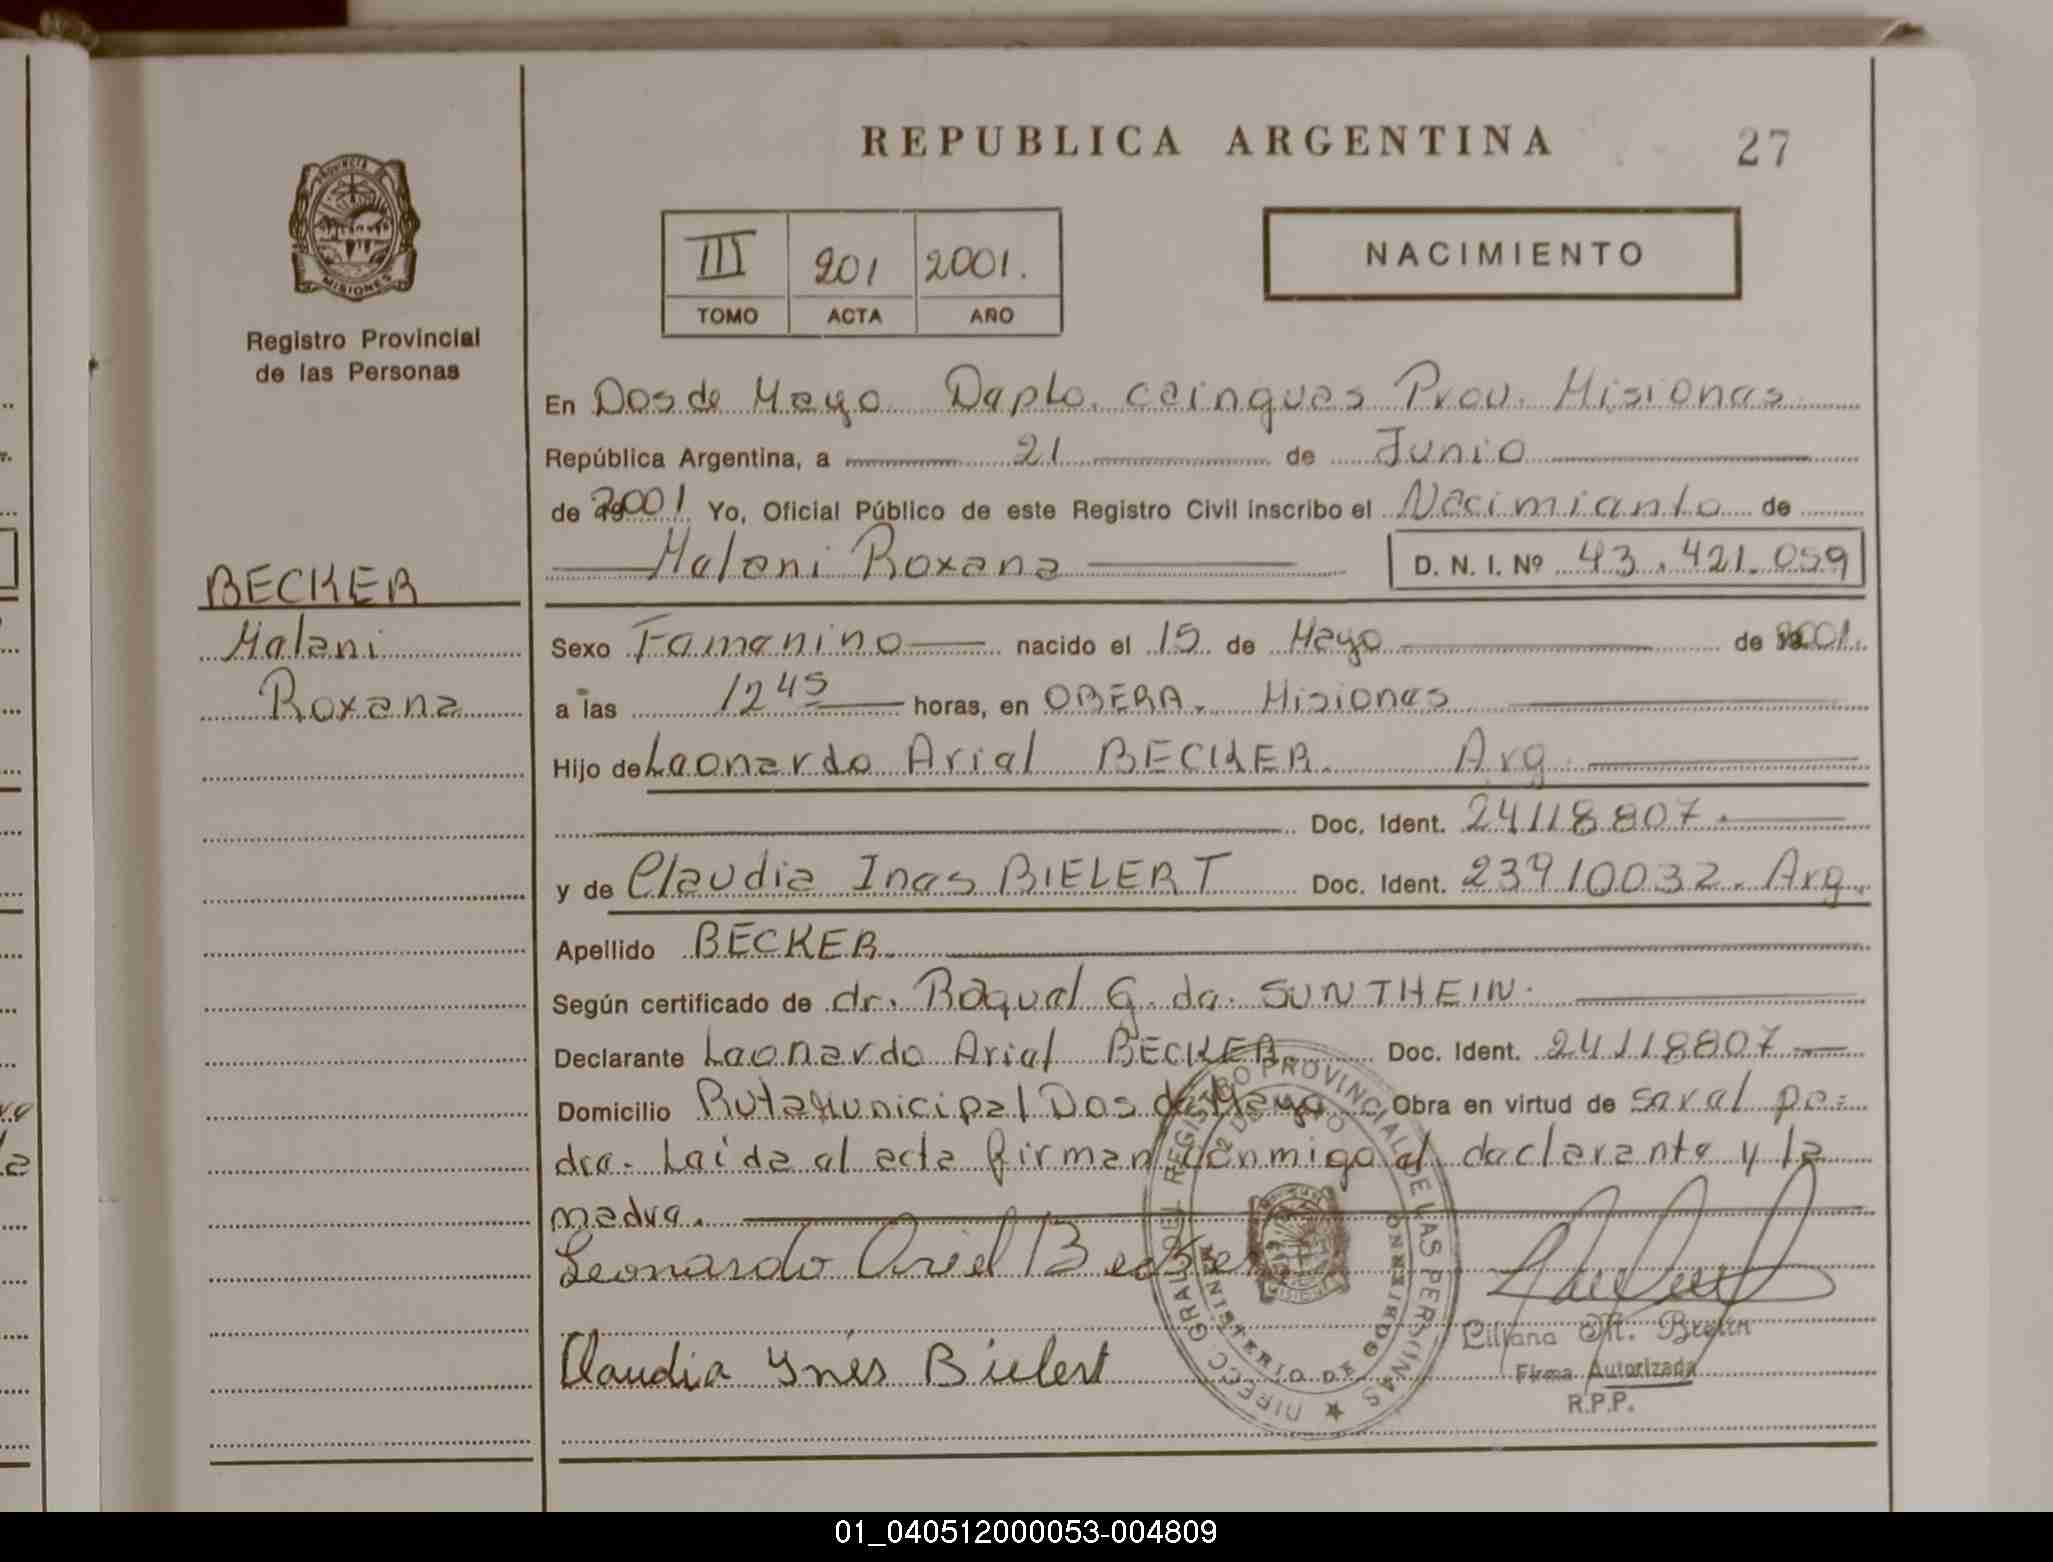 REPUBLICA ARGENTINA
27
PROVINCIA DE
MISIONES
Registro Provincial
de las Personas
III 201 2001.
TOMO ACTA AÑO
NACIMIENTO
En Dos de Mayo Depto. Cainguas Prov. Misiones
República Argentina, a 21 de Junio
de 2001 Yo, Oficial Público de este Registro Civil inscribo el Nacimiento de
Melani Roxana D. N. I. Nº 43.421.059
BECKER
Melani
Roxana
Sexo Femenino nacido el 15 de Mayo de 2001.
a las 12 45 horas, en OBERA. Misiones
Hijo de Leonardo Ariel BECKER. Arg.
Doc. Ident. 24118807.
y de Claudia Ines BIELERT Doc. Ident. 23910032. Arg.
Apellido BECKER.
Según certificado de dr. Raquel G. de. SUNTHEIN.
Declarante Leonardo Ariel BECKER Doc. Ident. 24118807
Domicilio Ruta Municipal Dos de Mayo Obra en virtud de ser el pa=
dre. Leída el acta firman conmigo el declarante y la
madre.
Leonardo Ariel Becker
Claudia Ynés Bielert
DIRECC. GRAL. DEL REGISTRO PROVINCIAL DE LAS PERSONAS
2 DE MAYO
MINISTERIO DE GOBIERNO
Liliana M.
Firma Autorizada
R.P.P.
01_040512000053-004809